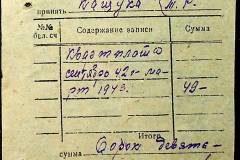 принять Пащука (М. Г.
№№ был. сч Содержание записи Сумма
Квартплата
сентябрь 42 г - ма-
рт 1943. 49-
Итого
сумма Сорок девять -